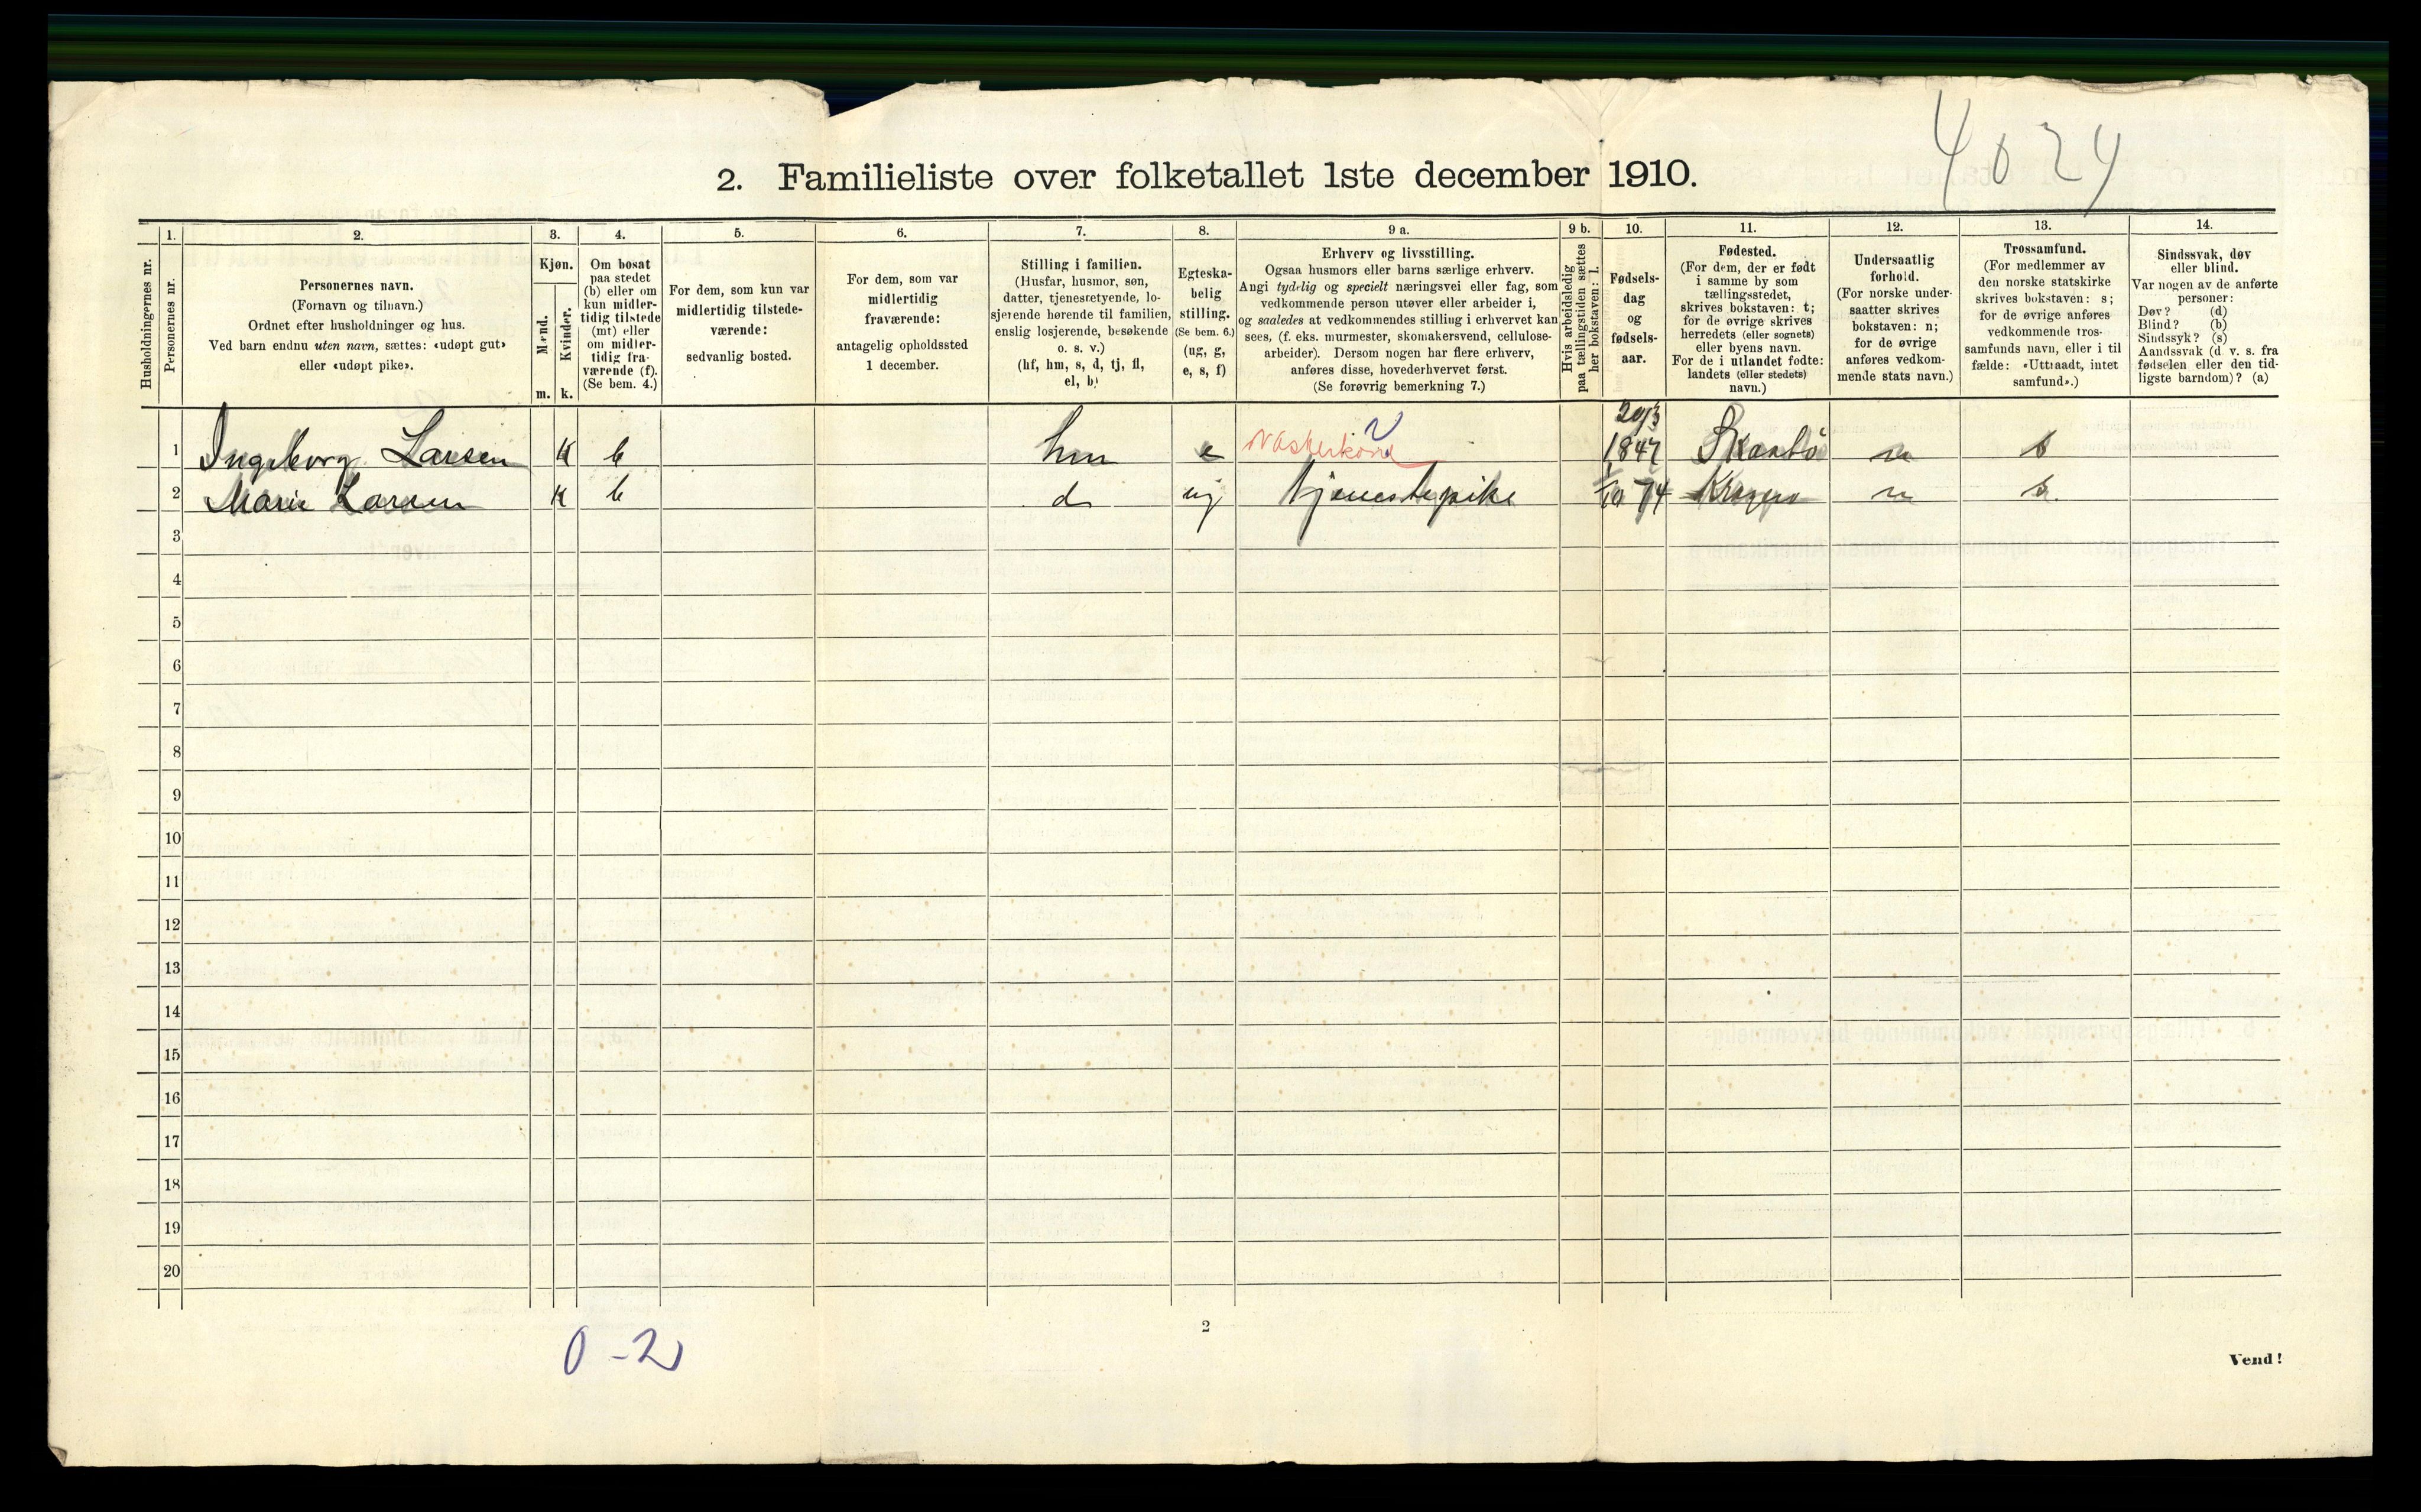 4024
2. Familieliste over folketallet 1ste december 1910.
Husholdningernes nr.
1.
Personernes nr.
2.
Personernes navn.
(Fornavn og tilnavn.)
Ordnet efter husholdninger og hus.
Ved barn endnu uten navn, sættes: «udøpt gut»
eller «udøpt pike».
3.
Kjøn.
Mænd.
Kvinder.
m. k.
4.
Om bosat
paa stedet
(b) eller om
kun midler-
tidig tilstede
(mt) eller
om midler-
tidig fra-
værende (f).
(Se bem. 4.)
5.
For dem, som kun var
midlertidig tilstede-
værende:
sedvanlig bosted.
6.
For dem, som var
midlertidig
fraværende:
antagelig opholdssted
1 december.
7.
Stilling i familien.
(Husfar, husmor, søn,
datter, tjenestetyende, lo-
sjerende hørende til familien,
enslig losjerende, besøkende
o. s. v.)
(hf, hm, s, d, tj, fl,
el, b)
8.
Egteska-
belig
stilling.
(Se bem. 6.)
(ug, g,
e, s, f)
9 a.
Erhverv og livsstilling.
Ogsaa husmors eller barns særlige erhverv.
Angi tydelig og specielt næringsvei eller fag, som
vedkommende person utøver eller arbeider i,
og saaledes at vedkommendes stilling i erhvervet kan
sees, (f. eks. murmester, skomakersvend, cellulose-
arbeider). Dersom nogen har flere erhverv,
anføres disse, hovederhvervet først.
(Se forøvrig bemerkning 7.)
9 b.
Hvis arbeidsledig
paa tællingstiden sættes
her bokstaven: l.
10.
Fødsels-
dag
og
fødsels-
aar.
11.
Fødested.
(For dem, der er født
i samme by som
tællingsstedet,
skrives bokstaven: t;
for de øvrige skrives
herredets (eller sognets)
eller byens navn.
For de i utlandet fødte:
landets (eller stedets)
navn.)
12.
Undersaatlig
forhold.
(For norske under-
saatter skrives
bokstaven: n;
for de øvrige
anføres vedkom-
mende stats navn.)
13.
Trossamfund.
(For medlemmer av
den norske statskirke
skrives bokstaven: s;
for de øvrige anføres
vedkommende tros-
samfunds navn, eller i til
fælde: «Uttraadt, intet
samfund».)
14.
Sindssvak, døv
eller blind.
Var nogen av de anførte
personer:
Døv? (d)
Blind? (b)
Sindssyk? (s)
Aandssvak (d. v. s. fra
fødselen eller den tid-
ligste barndom)? (a)
1 Ingeborg Larsen k b hm e Vaskekone 29/3 1847 n s
2 Marie Larsen k b d ug tjenestepike 74 n s
3
4
5
6
7
8
9
10
11
12
13
14
15
16
17
18
19
20
0-2
2
Vend!